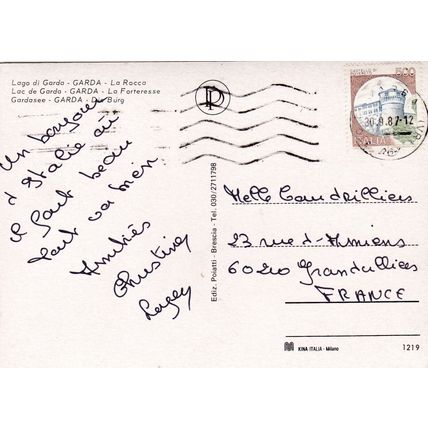 Lago di Garda - GARDA - La Rocca
Lac de Garda - GARDA - La Forteresse
Gardasee - GARDA - Die Burg
un bonjour
d'Italie où
il fait beau
tout va bien
Amitiés
Christine
Ediz. Poiatti - Brescia - Tel. 030/2711798
500
ITALIA
30.9.87-12
Melle
23 rue d'Amiens
60210 Grandvilliers
FRANCE
KINA ITALIA - Milano
1219